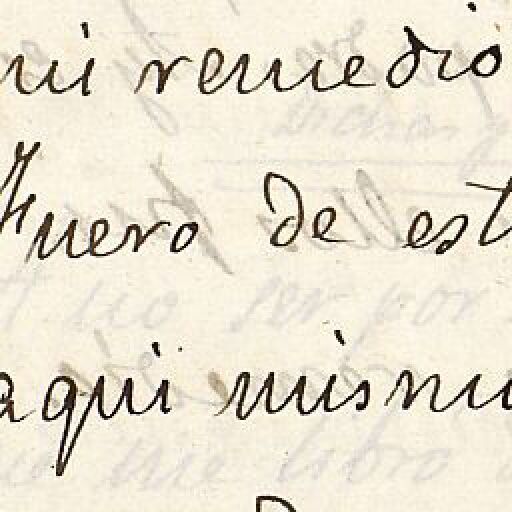 mi remedio
Fuero de est
aqui mismo